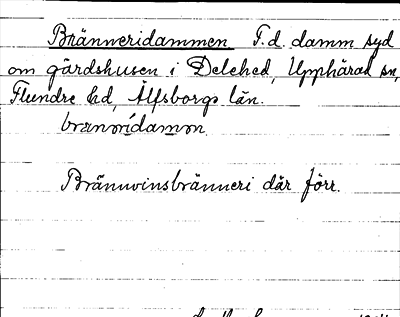 Bränneridammen F.d. damm syd
om gårdshusen i Delehed, Upphärad sn,
Flundre hd, Älfsborgs län.
brænnrídamən
Brännvinsbränneri där förr.